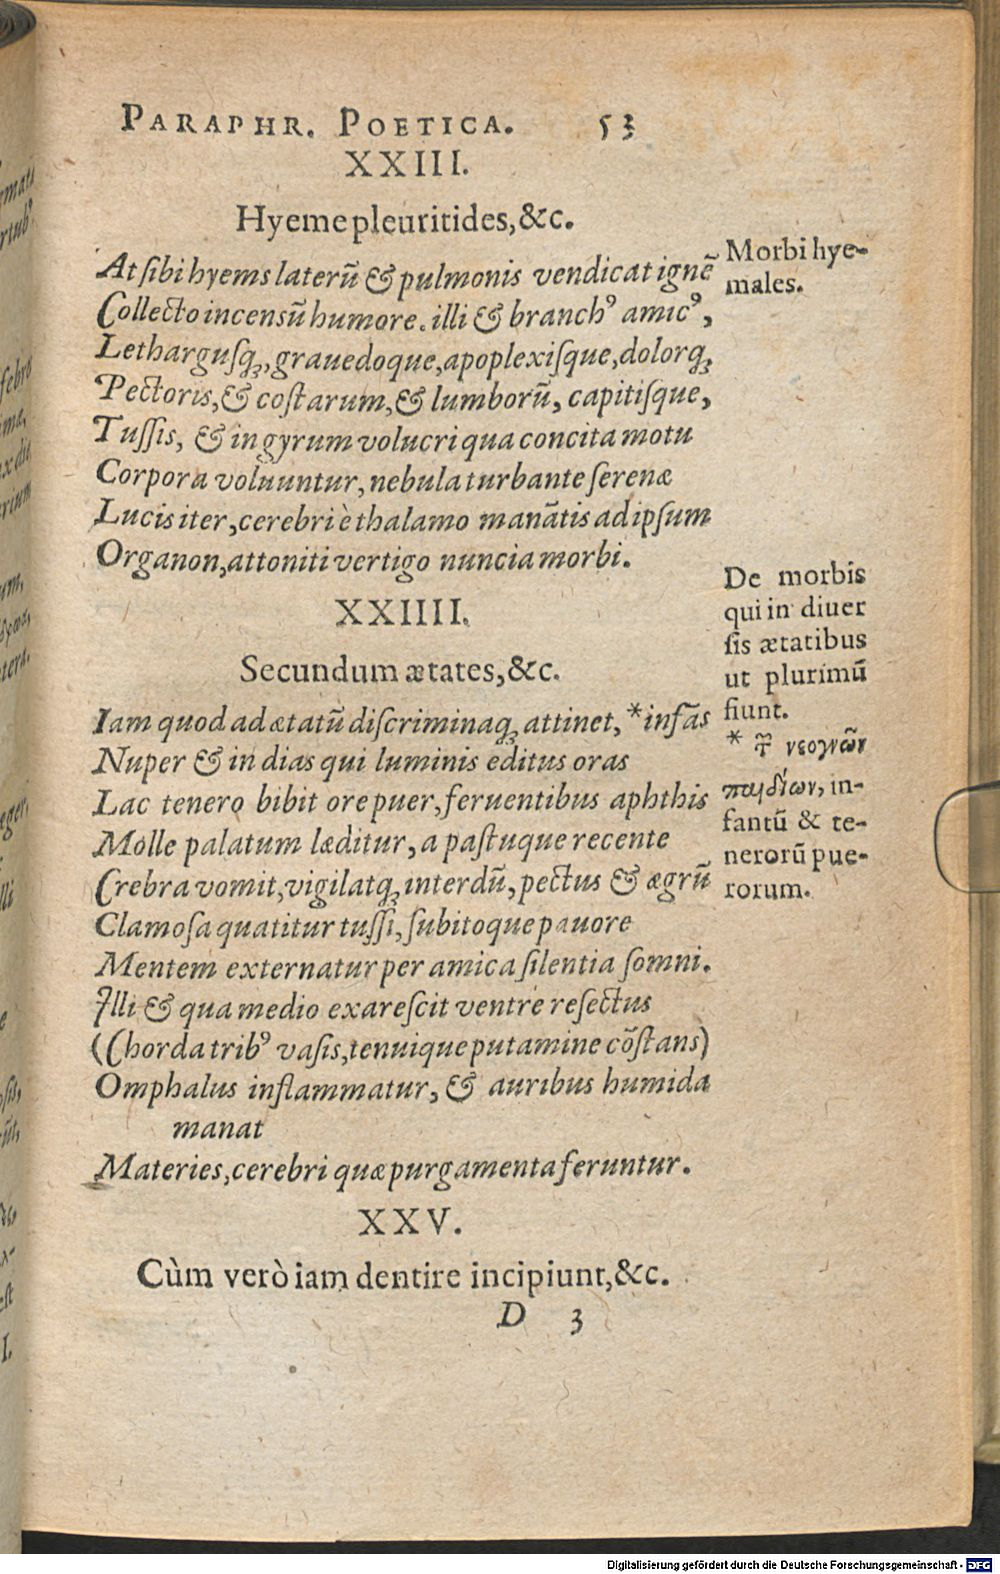 PARAPHR. POETICA. 53
XXIII.
Hyeme pleuritides, &c.
At ſibi hyems laterū & pulmonis vendicat ignē
Collecto incensū humore. illi & branchꝰ amicꝰ,
Lethargusq́ꝫ, grauedoque, apoplexiſque, dolorq́ꝫ
Pectoris, & coſtarum, & lumborū, capitiſque,
Tuſſis, & in gyrum volucri qua concita motu
Corpora voluuntur, nebula turbante ſerenæ
Lucis iter, cerebri è thalamo manātis ad ipſum
Organon, attoniti vertigo nuncia morbi.
Morbi hye-
males.
XXIIII.
Secundum ætates, &c.
Iam quod ad ætatū diſcrimina qꝫ attinet, *infās
Nuper & in dias qui luminis editus oras
Lac tenero bibit ore puer, feruentibus aphthis
Molle palatum læditur, a paſtuque recente
Crebra vomit, vigilatqꝫ interdū, pectus & ægrū
Clamoſa quatitur tuſſi, ſubitoque pauore
Mentem externatur per amica ſilentia ſomni.
Illi & qua medio exareſcit ventre reſectus
(Chorda tribꝰ vaſis, tenuique putamine cōſtans)
Omphalus inflammatur, & auribus humida
manat
Materies, cerebri quæ purgamenta feruntur.
De morbis
qui in diuer
ſis ætatibus
ut plurimū
fiunt.
* τῶν νεογνῶν
παιδίων, in-
fantū & te-
nerorū pue-
rorum.
XXV.
Cùm verò iam dentire incipiunt, &c.
D 3
Digitalisierung gefördert durch die Deutsche Forschungsgemeinschaft - DFG